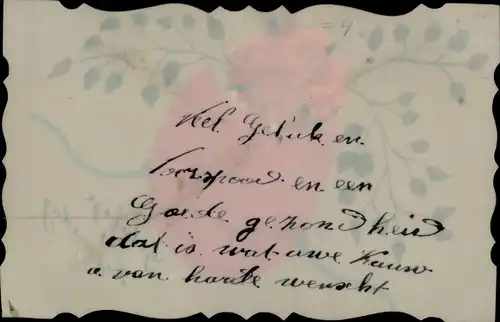 =4
Veel Geluk en
Voorspoed en een
Goede gezondheid
dat is wat uwe
u van harte wenscht